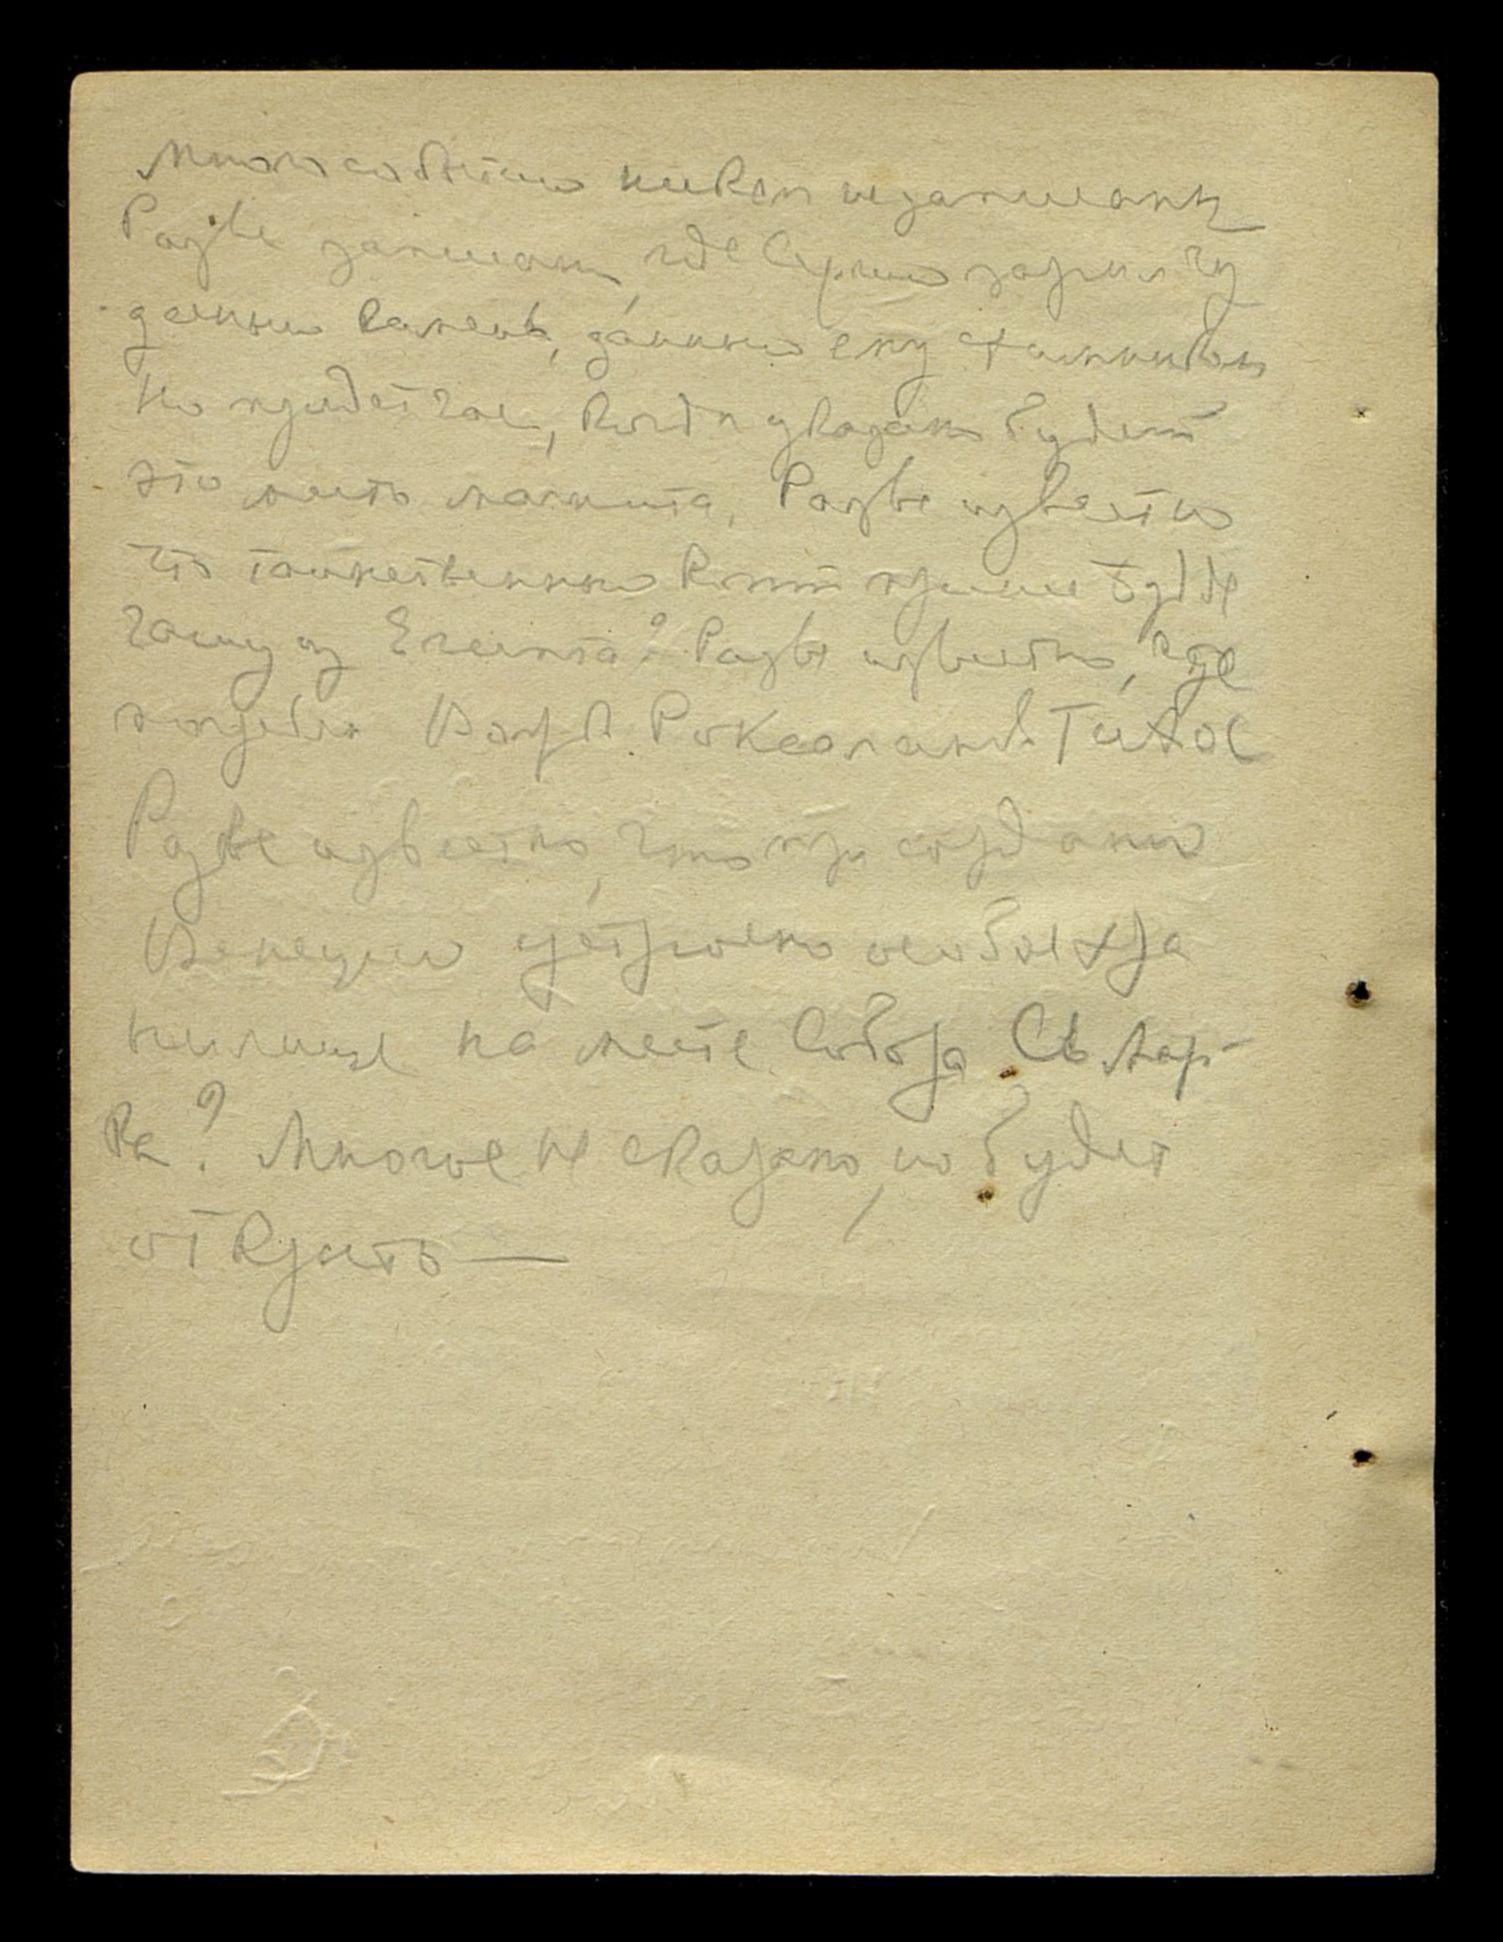 Много событий никем не записаны
Разве записано, где Сергий зарыл чу
десный камень, данный ему странником
Но придет час, когда указано будет
это место магнита. Разве известно
что таинственный Копт принес Будде
чашу из Египта? Разве известно, где
погребен Царь Роксоланов Гиатос
Разве известно, что при создании
Венеции устроено особое хра
нилище на месте Собора Св Мар
ка? Многое не сказано, но будет
открыто —